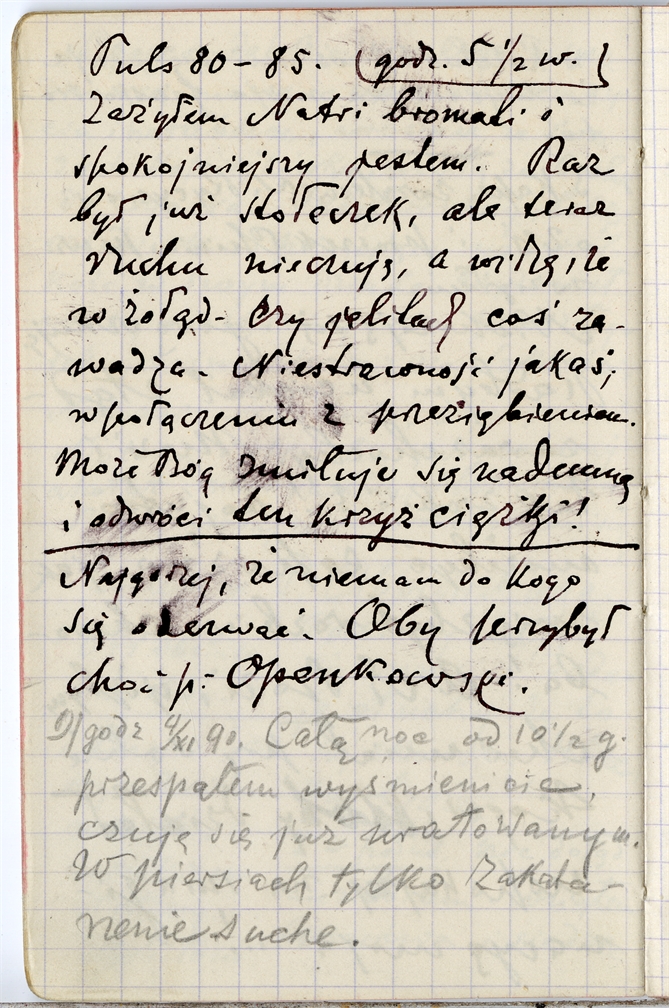 Puls 80 – 85. (godz. 5 1/2 w.)
Zażyłem Natri bromati i
spokojniejszy jestem. Raz
był już stołeczek, ale teraz
ruchu nieczuję, a widzę, że
w żołąd- czy jelitach coś za-
wadza. Niestrawność jakaś,
w połączeniu z przeziębieniem.
Może Bóg zmiłuje się nademną
i odwróci ten krzyż ciężki!
Najgorzej, że niemam do kogo
się oderwać. Oby przybył
choć p. Openkowski.
9/godz 4/XI 90. Całą noc od 10 1/2 g.
przespałem wyśmienicie,
czuję się już uratowanym.
W piersiach tylko zakata-
rzenie suche.